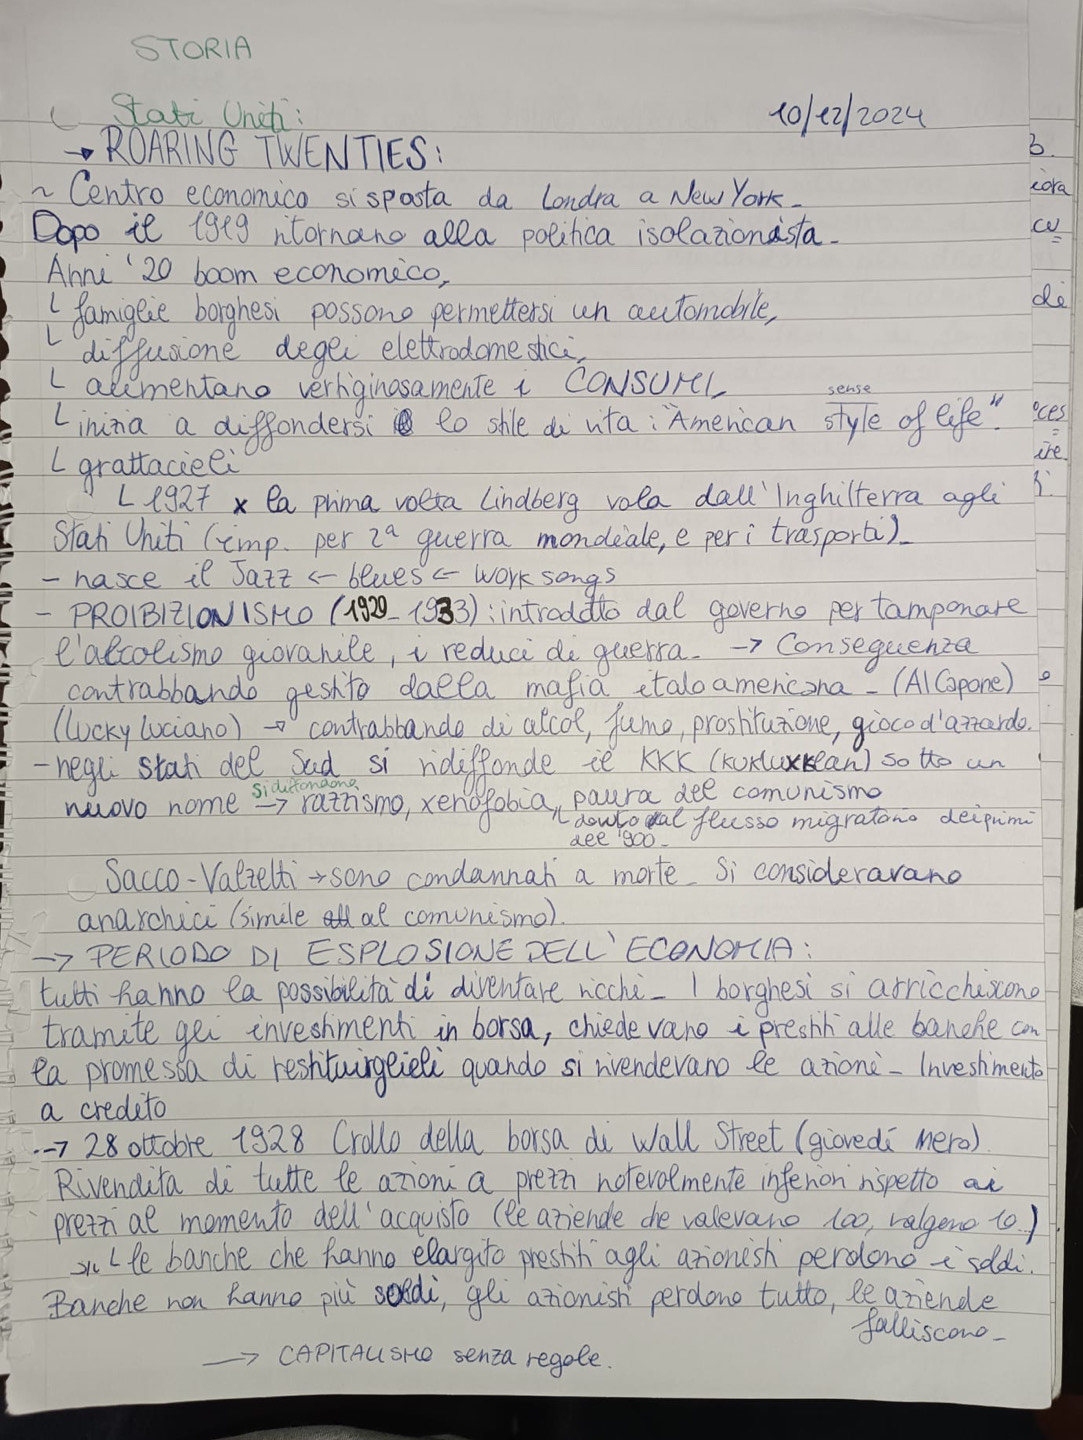 STORIA
Stati Uniti:
10/12/2024
→ ROARING TWENTIES:
~ Centro economico si sposta da Londra a New York.
Dopo il 1919 ritornano alla politica isolazionista.
Anni '20 boom economico,
└ famiglie borghesi possono permettersi un automobile,
└ diffusione degli elettrodomestici,
└ aumentano vertiginosamente i CONSUMI,
sense
└ inizia a diffondersi lo stile di vita: "American style of life".
└ grattacieli
└ 1927 x la prima volta Lindberg vola dall'Inghilterra agli
Stati Uniti (imp. per 2ª guerra mondiale, e per i trasporti).
- nasce il Jazz ← blues ← work songs
- PROIBIZIONISMO (1920-1933): introdotto dal governo per tamponare
l'alcolismo giovanile, i reduci di guerra. → Conseguenza
contrabbando gestito dalla mafia italoamericana - (Al Capone)
(Lucky Luciano) → contrabbando di alcol, fumo, prostituzione, gioco d'azzardo.
- negli stati del Sud si ridiffonde il KKK (kukluxklan) sotto un
si diffondono
nuovo nome → razzismo, xenofobia, paura del comunismo
└ dovuto dal flusso migratorio dei primi
del '900.
Sacco-Valzetti → sono condannati a morte. Si consideravano
anarchici (simile al comunismo).
→ PERIODO DI ESPLOSIONE DELL'ECONOMIA:
tutti hanno la possibilità di diventare ricchi. I borghesi si arricchiscono
tramite gli investimenti in borsa, chiedevano i prestiti alle banche con
la promessa di restituirglieli quando si rivendevano le azioni. Investimento
a credito
→ 28 ottobre 1928 Crollo della borsa di Wall Street (giovedí nero).
Rivendita di tutte le azioni a prezzi notevolmente inferiori rispetto ai
prezzi al momento dell'acquisto (le aziende che valevano 100, valgono 10..)
└ le banche che hanno elargito prestiti agli azionisti perdono i soldi.
Banche non hanno più soldi, gli azionisti perdono tutto, le aziende
falliscono.
→ CAPITALISMO senza regole.